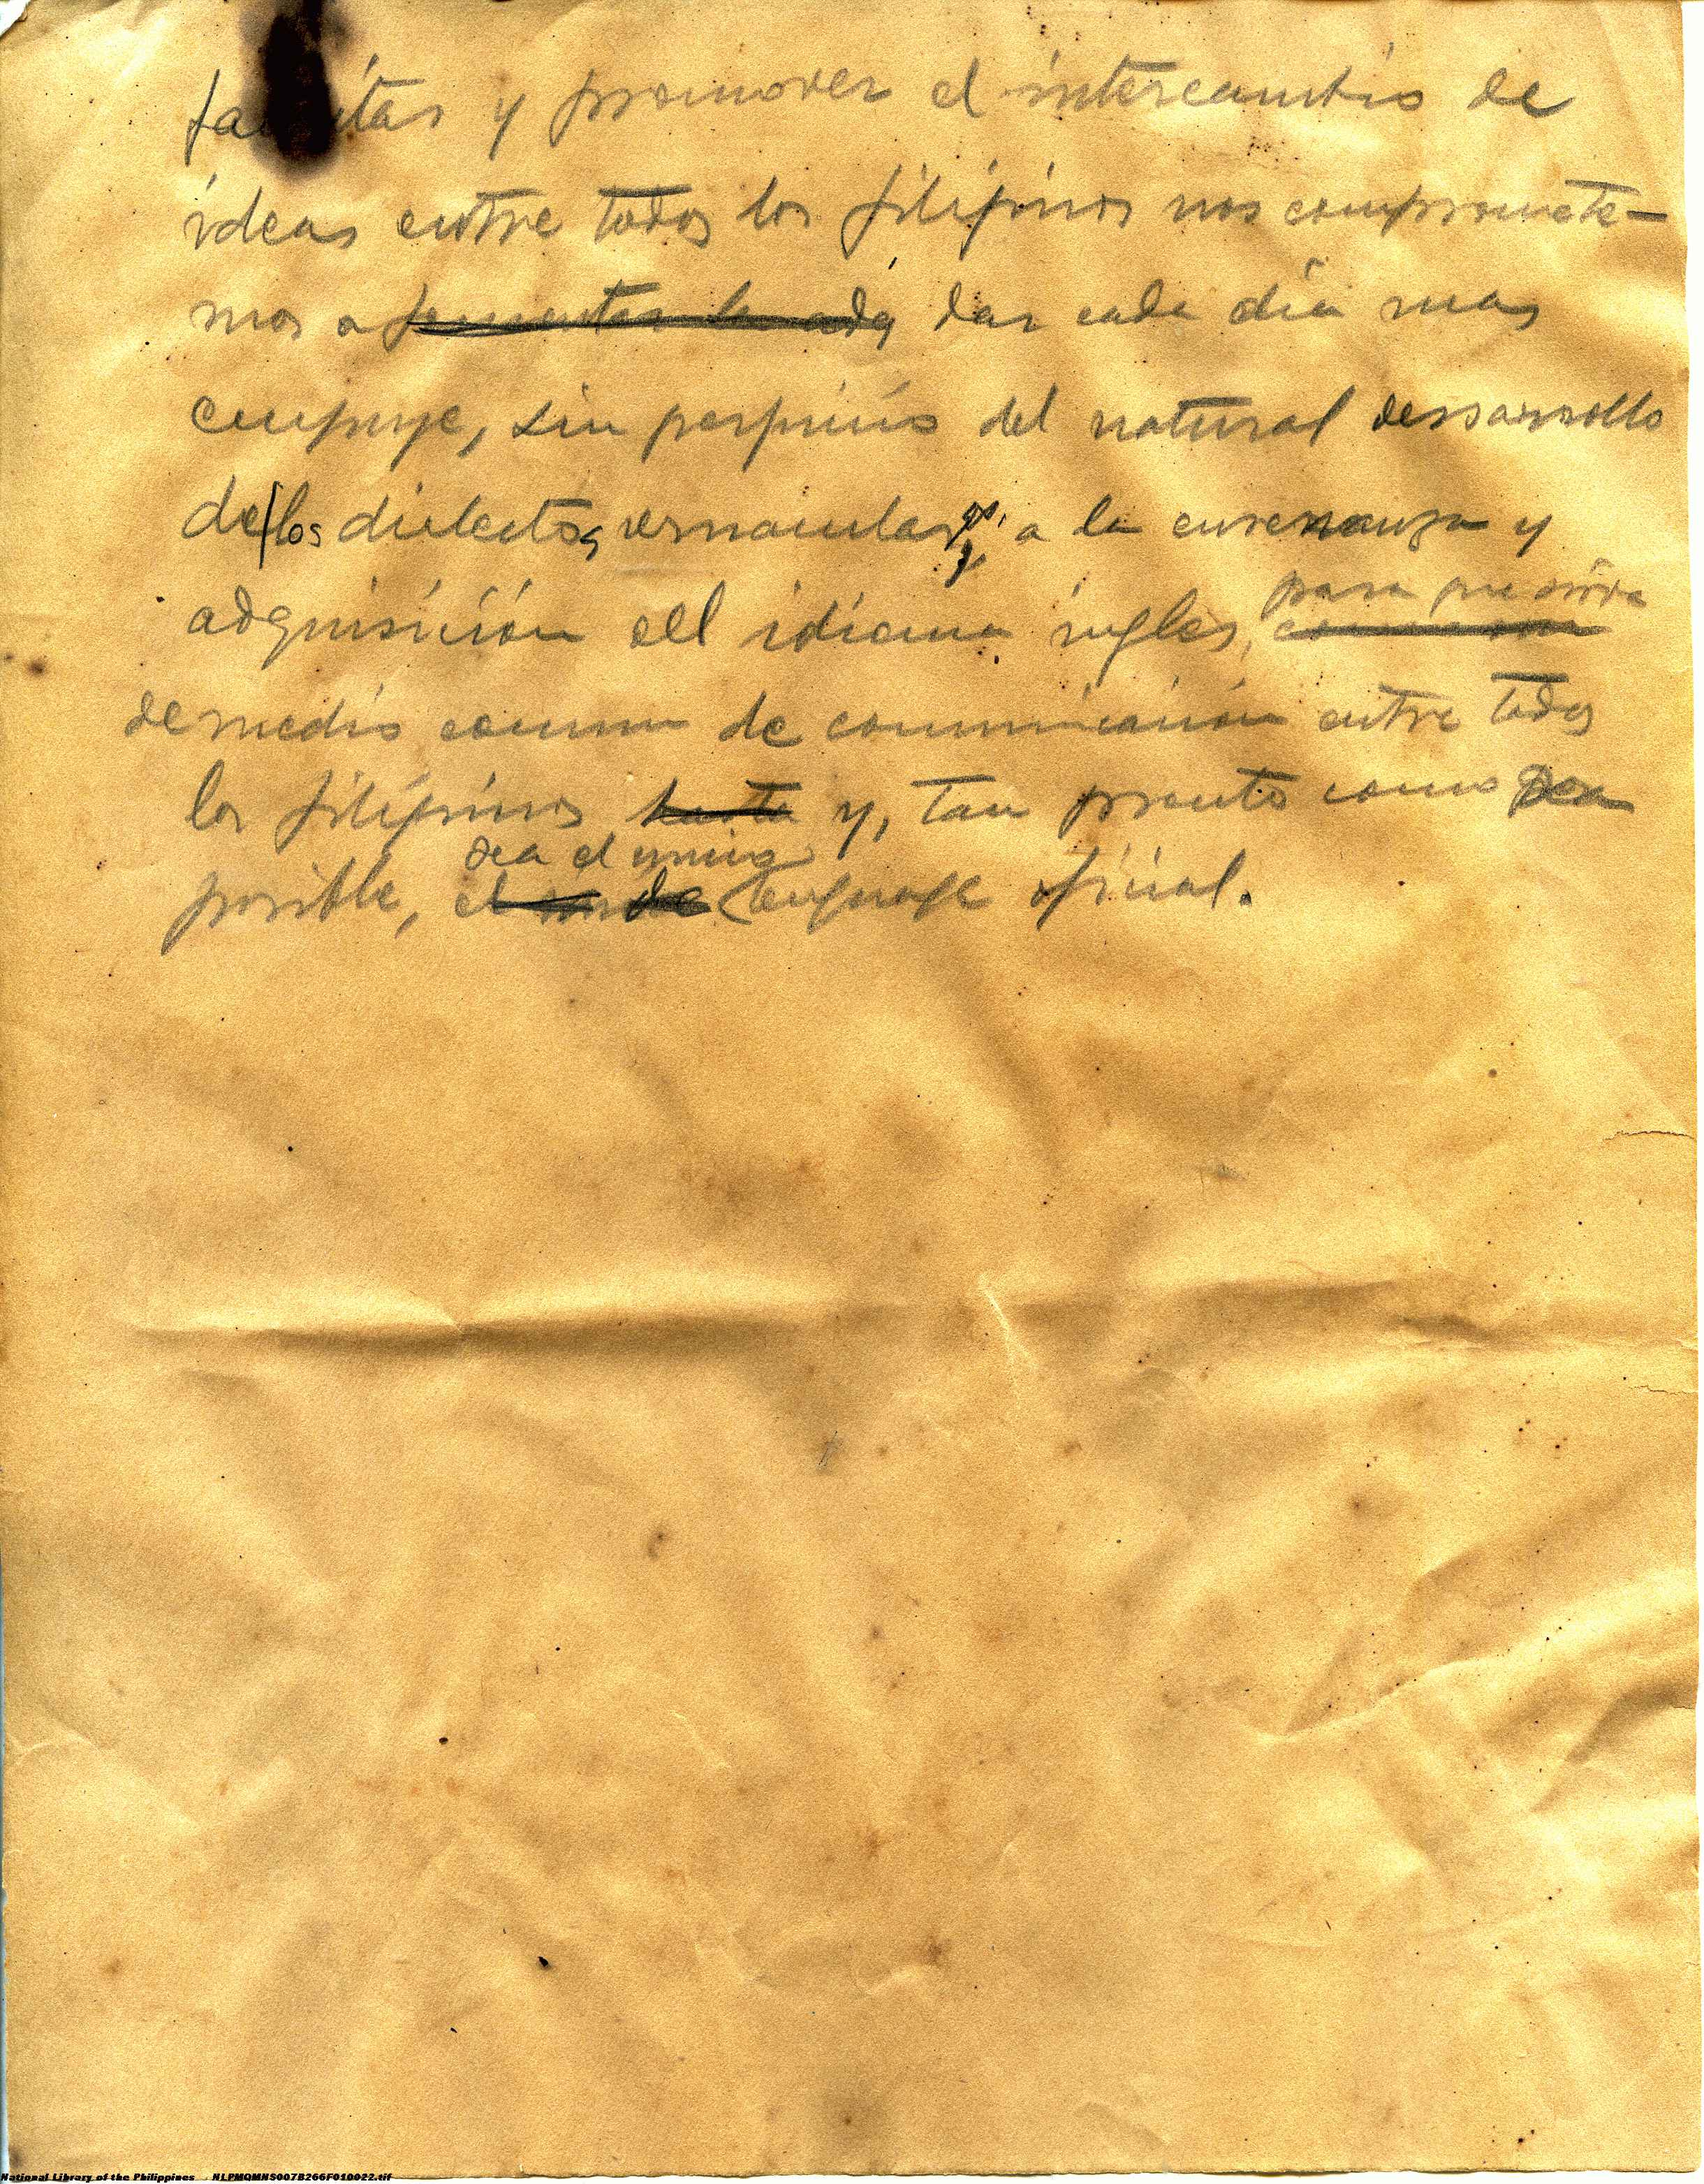 facilitar y promover el intercambio de
ideas entre todos los filipinos nos compromete-
mos a fomentar la adq dar cada dia mas
empuje, sin perjuicio del natural desarrollo
de los dialectos vernaculares, a la ensenanza y
adquisición del idioma ingles,
para que sirva
de medio comun de comunicación entre todos
los filipinos hasta y, tan pronto como sea
sea el unico
posible, el lenguaje oficial.
National Library of the Philippines NLPMQMNS007B266F010022.tif